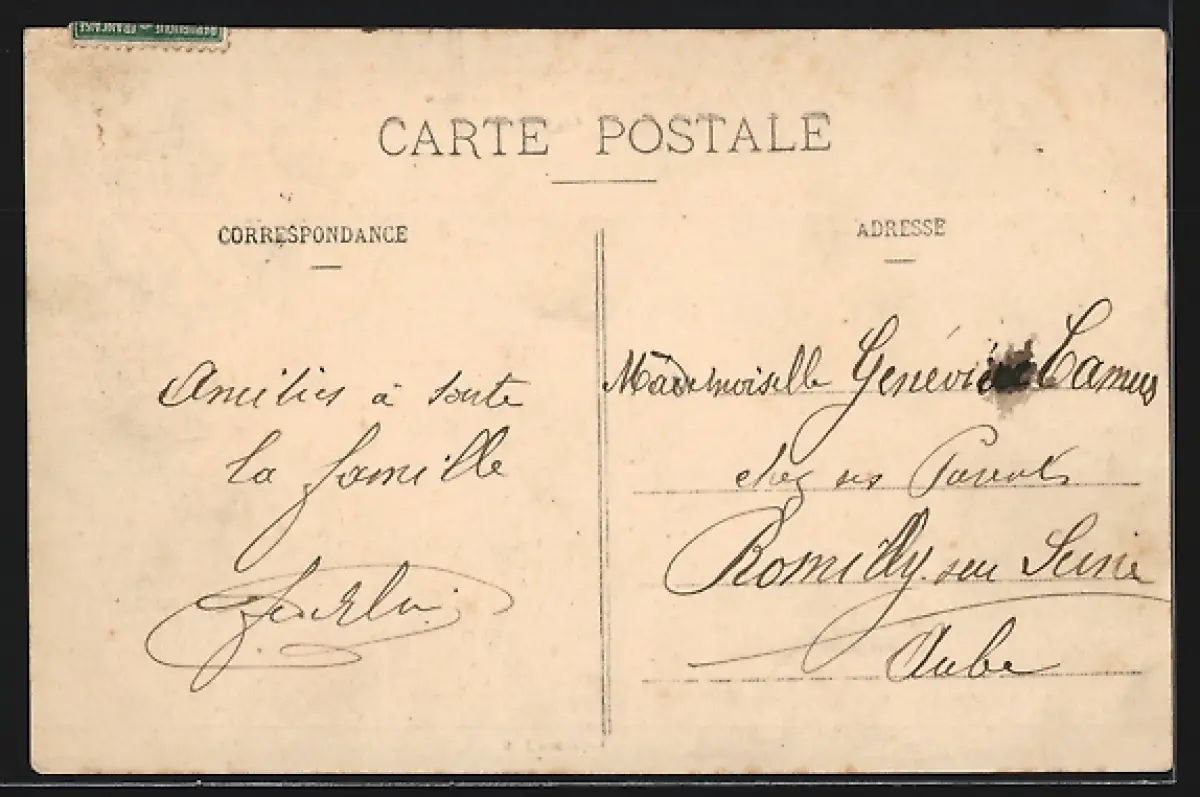 REPUBLIQUE FRANCAISE
CARTE POSTALE
CORRESPONDANCE
Amitiés à toute
la famille
ADRESSE
Mademoiselle Geneviève Camus
chez ses Parents
Romilly sur Seine
Aube